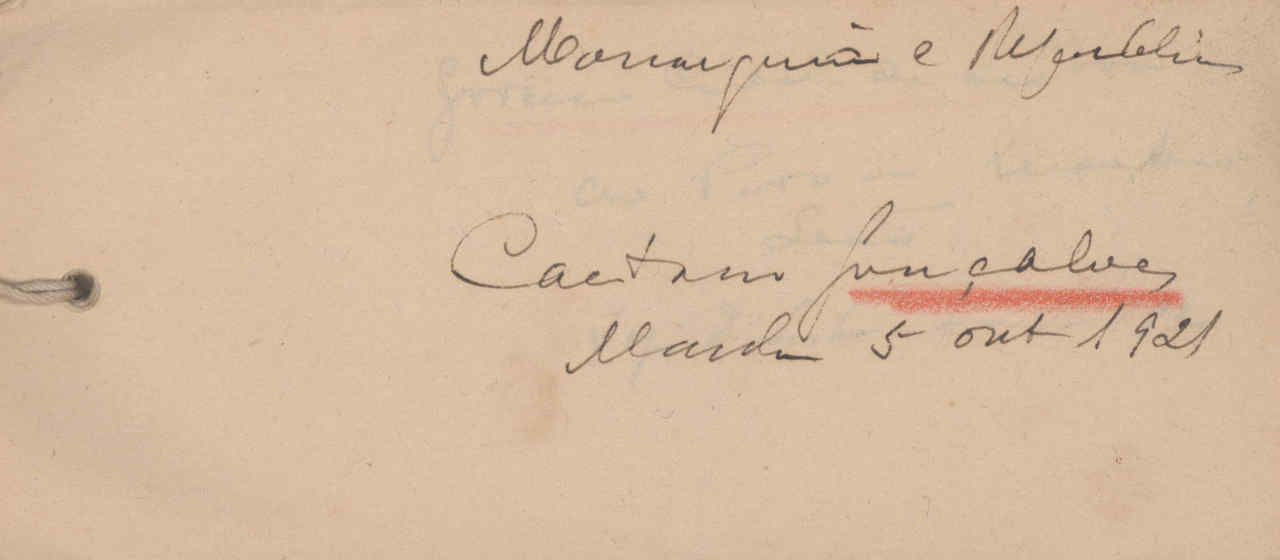 Monarquia e Republica
Caetano Gonçalves
5 out 1921